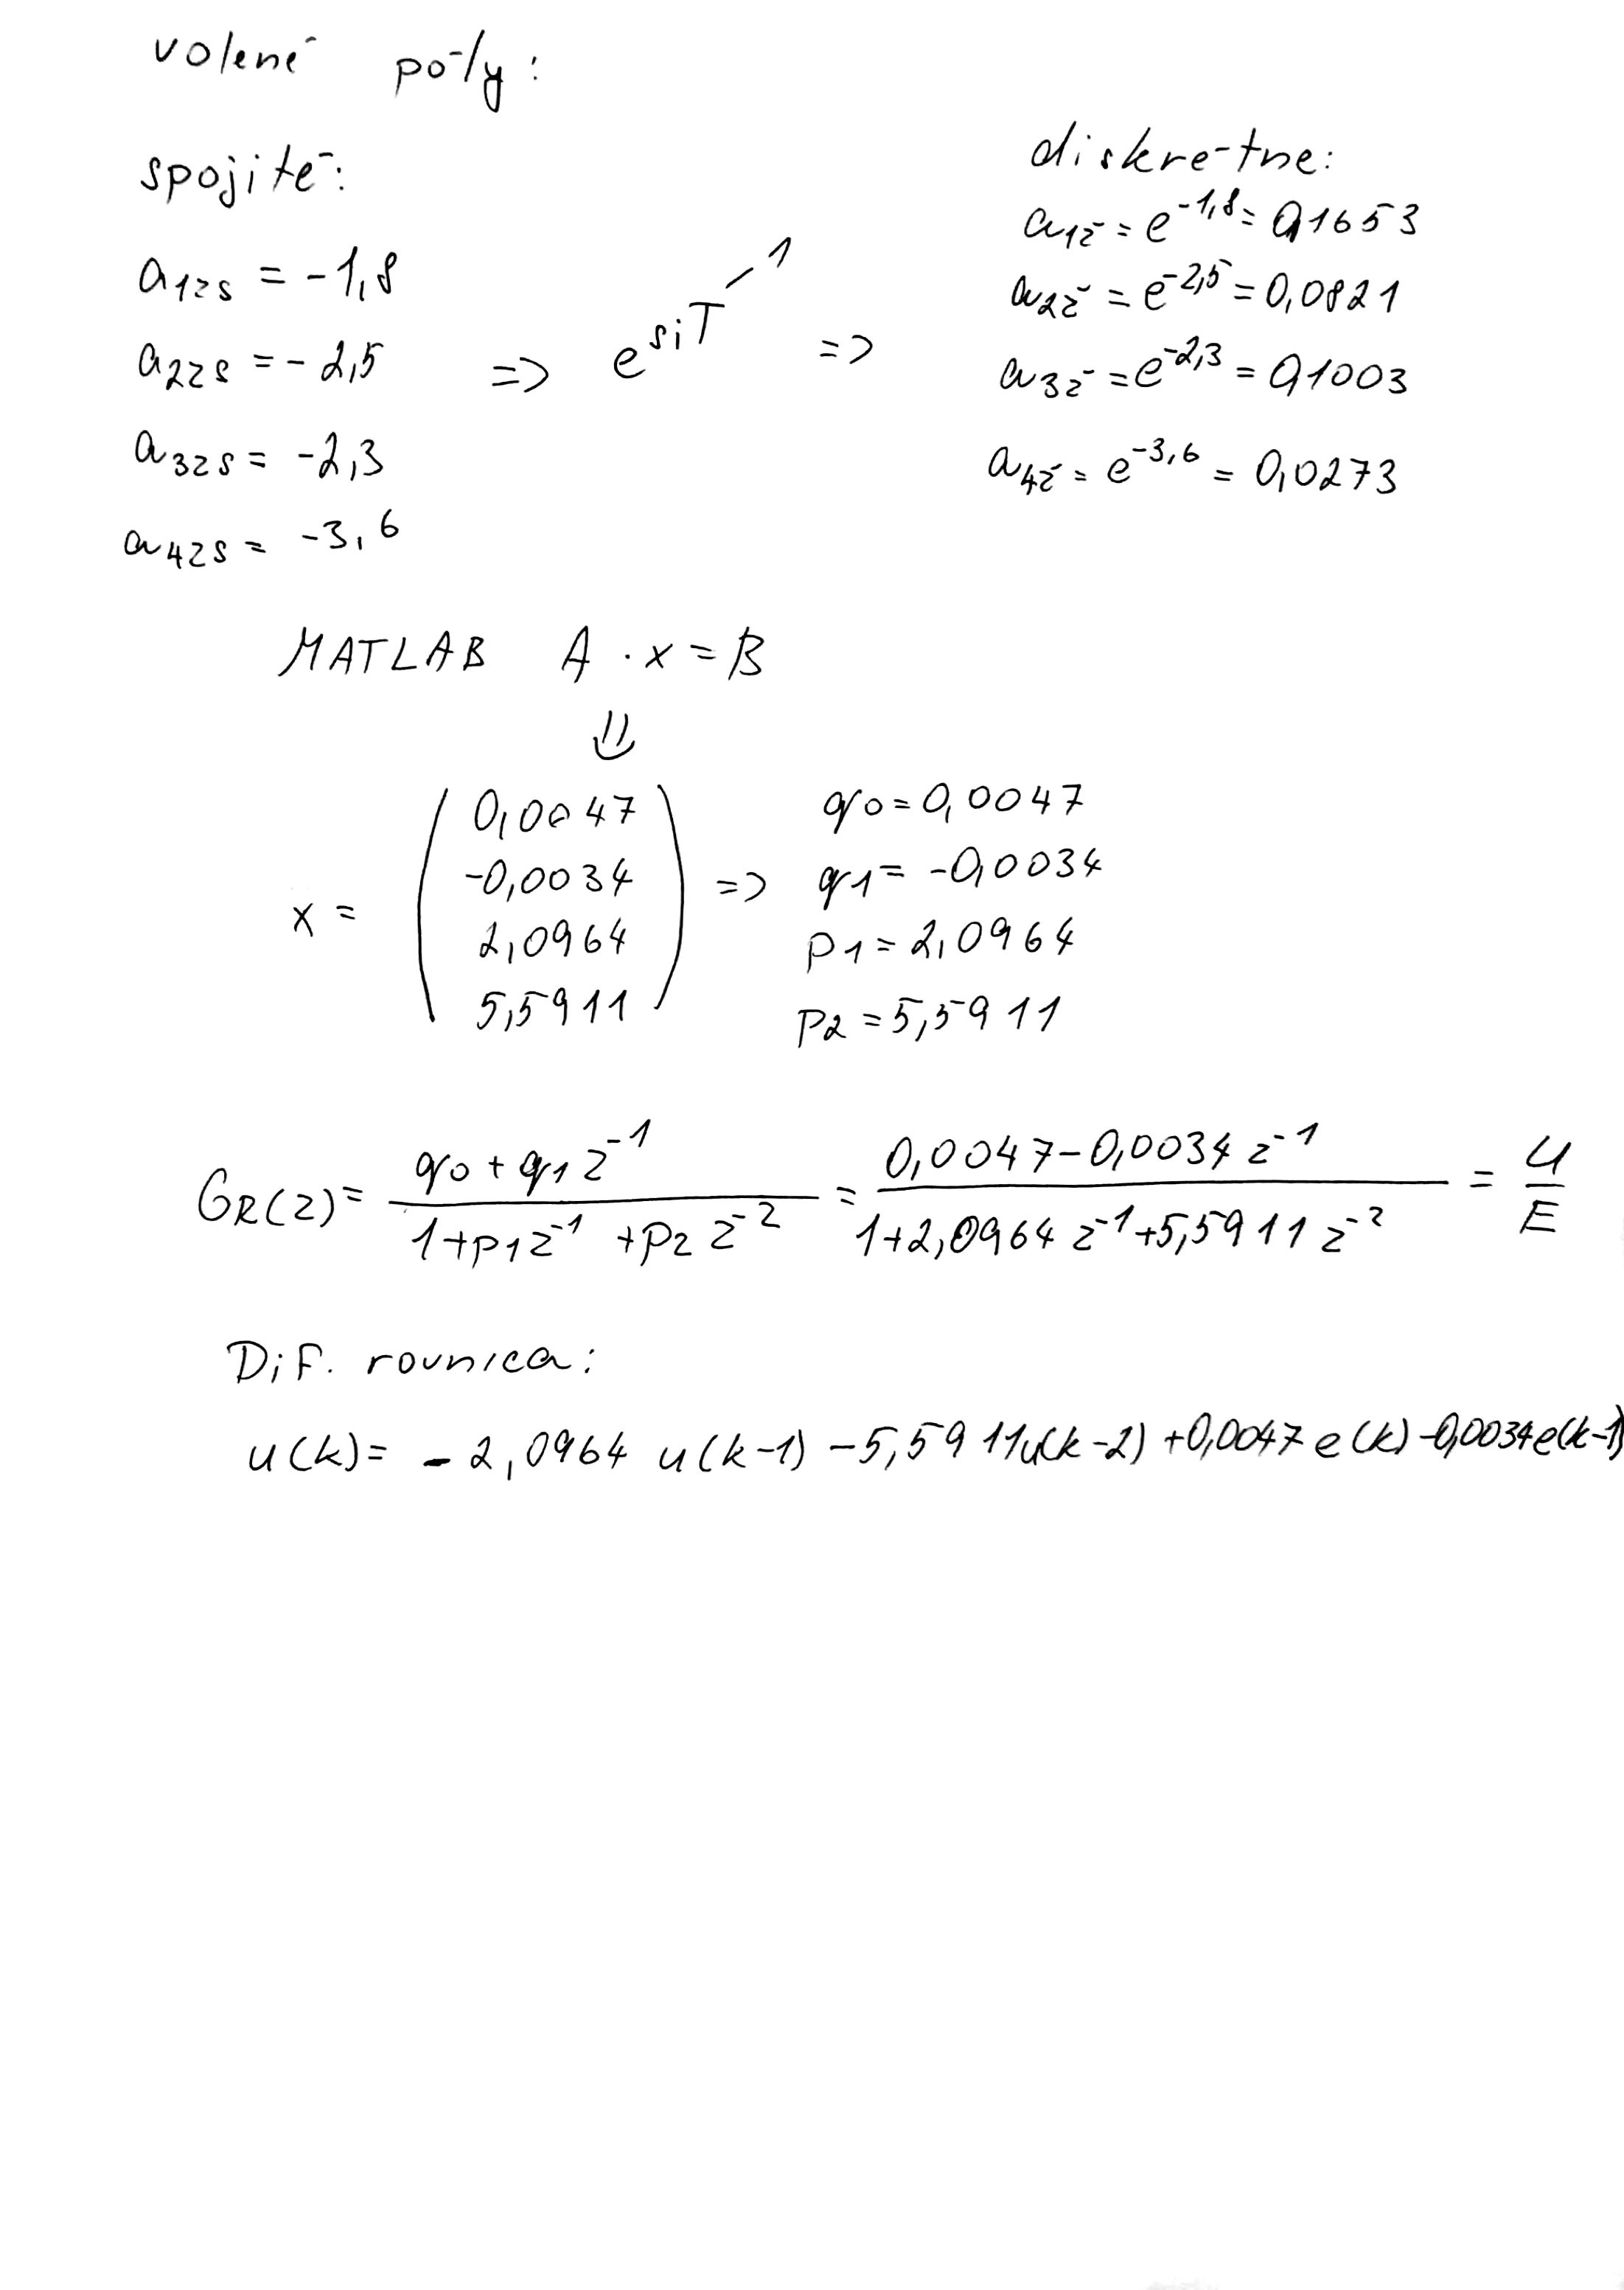 volené póly:
spojité:
diskrétne:
a1zs = -1,8
a2zs = -2,5
a3zs = -2,3
a4zs = -3,6
=> e^siT → 1 =>
a1z = e^-1,8 = 0,1653
a2z = e^-2,5 = 0,0821
a3z = e^-2,3 = 0,1003
a4z = e^-3,6 = 0,0273
MATLAB A . x = B
⇓
x = ( 0,0047
-0,0034
2,0964
5,5911 ) =>
q0 = 0,0047
q1 = -0,0034
p1 = 2,0964
p2 = 5,5911
GR(z) = (q0 + q1 z^-1) / (1 + p1 z^-1 + p2 z^-2) = (0,0047 - 0,0034 z^-1) / (1 + 2,0964 z^-1 + 5,5911 z^-2) = U / E
Dif. rovnica:
u(k) = - 2,0964 u(k-1) - 5,5911u(k-2) + 0,0047 e(k) - 0,0034e(k-1)